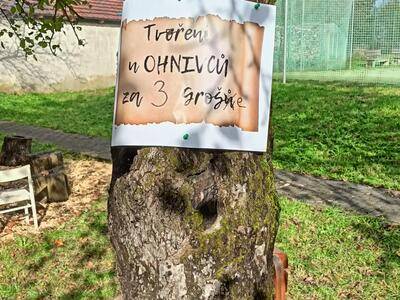 Tvoření
u OHNIVCŮ
za 3 groše